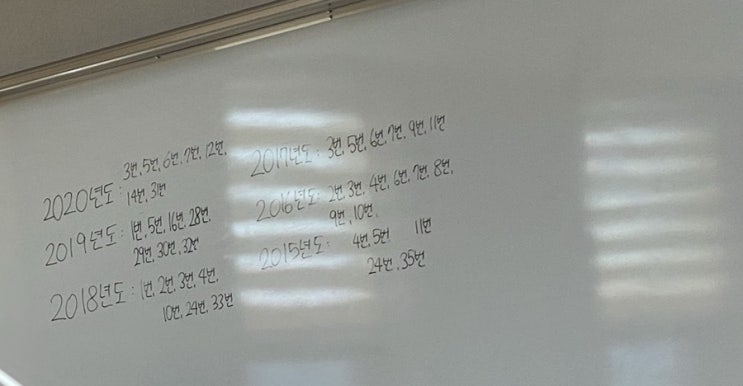 2020년도 : 3번, 5번, 6번, 7번, 12번,
14번, 31번
2019년도 : 1번, 5번, 16번, 28번,
29번, 30번, 32번
2018년도 : 1번, 2번, 3번, 4번,
10번, 24번, 33번
2017년도 : 3번, 5번, 6번, 7번, 9번, 11번
2016년도 : 2번, 3번, 4번, 6번, 7번, 8번,
9번, 10번,
2015년도 : 4번, 5번 11번
24번, 35번